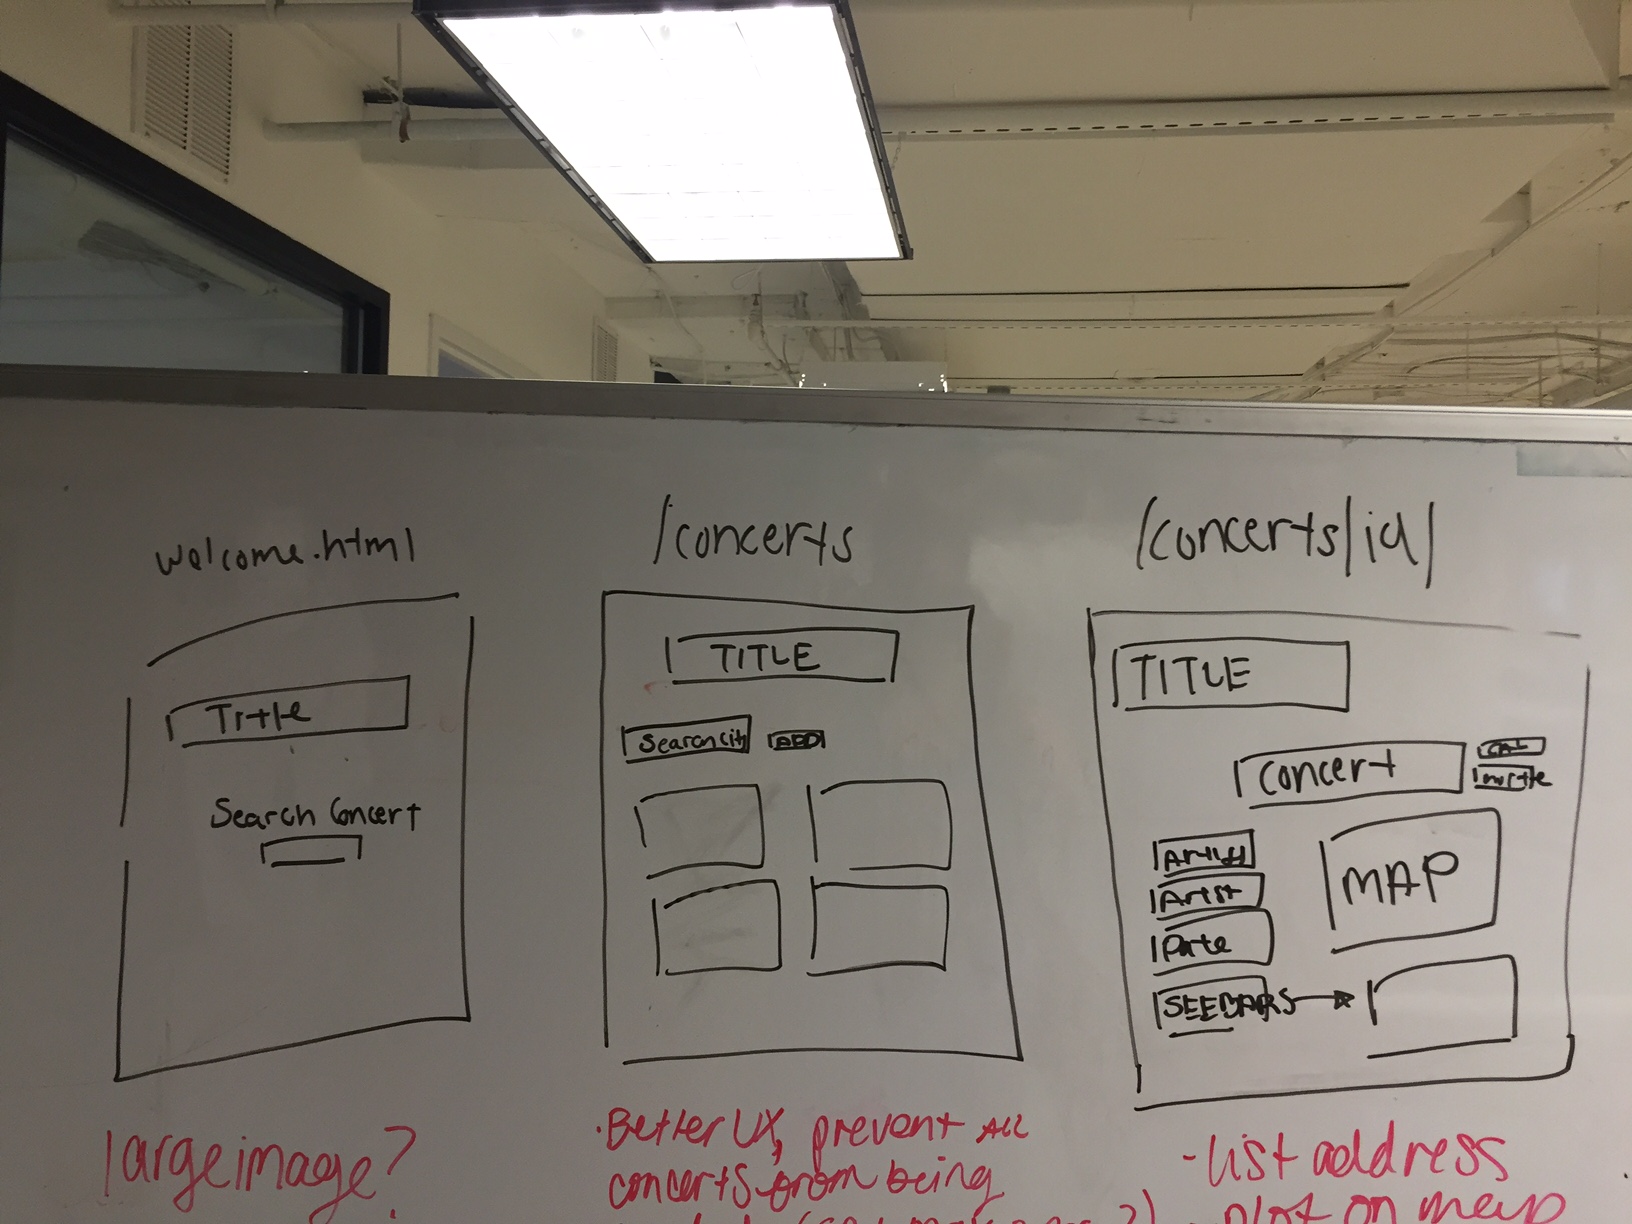 welcome.html
Title
Search Concert
large image?
/concerts
TITLE
Search City
ADD
·Better UX, prevent ALL
concerts from being
/concerts/id/
TITLE
concert
CAL
Invite
Artist
Artist
Date
SEE BARS
MAP
-list address
plot on map